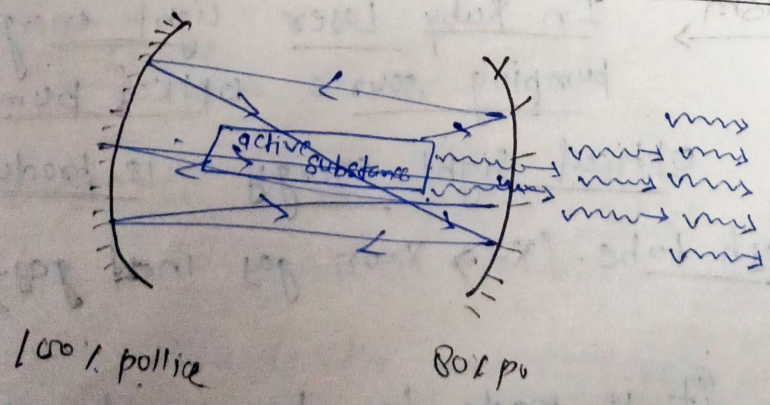 active
substance
100% pollice
80% po